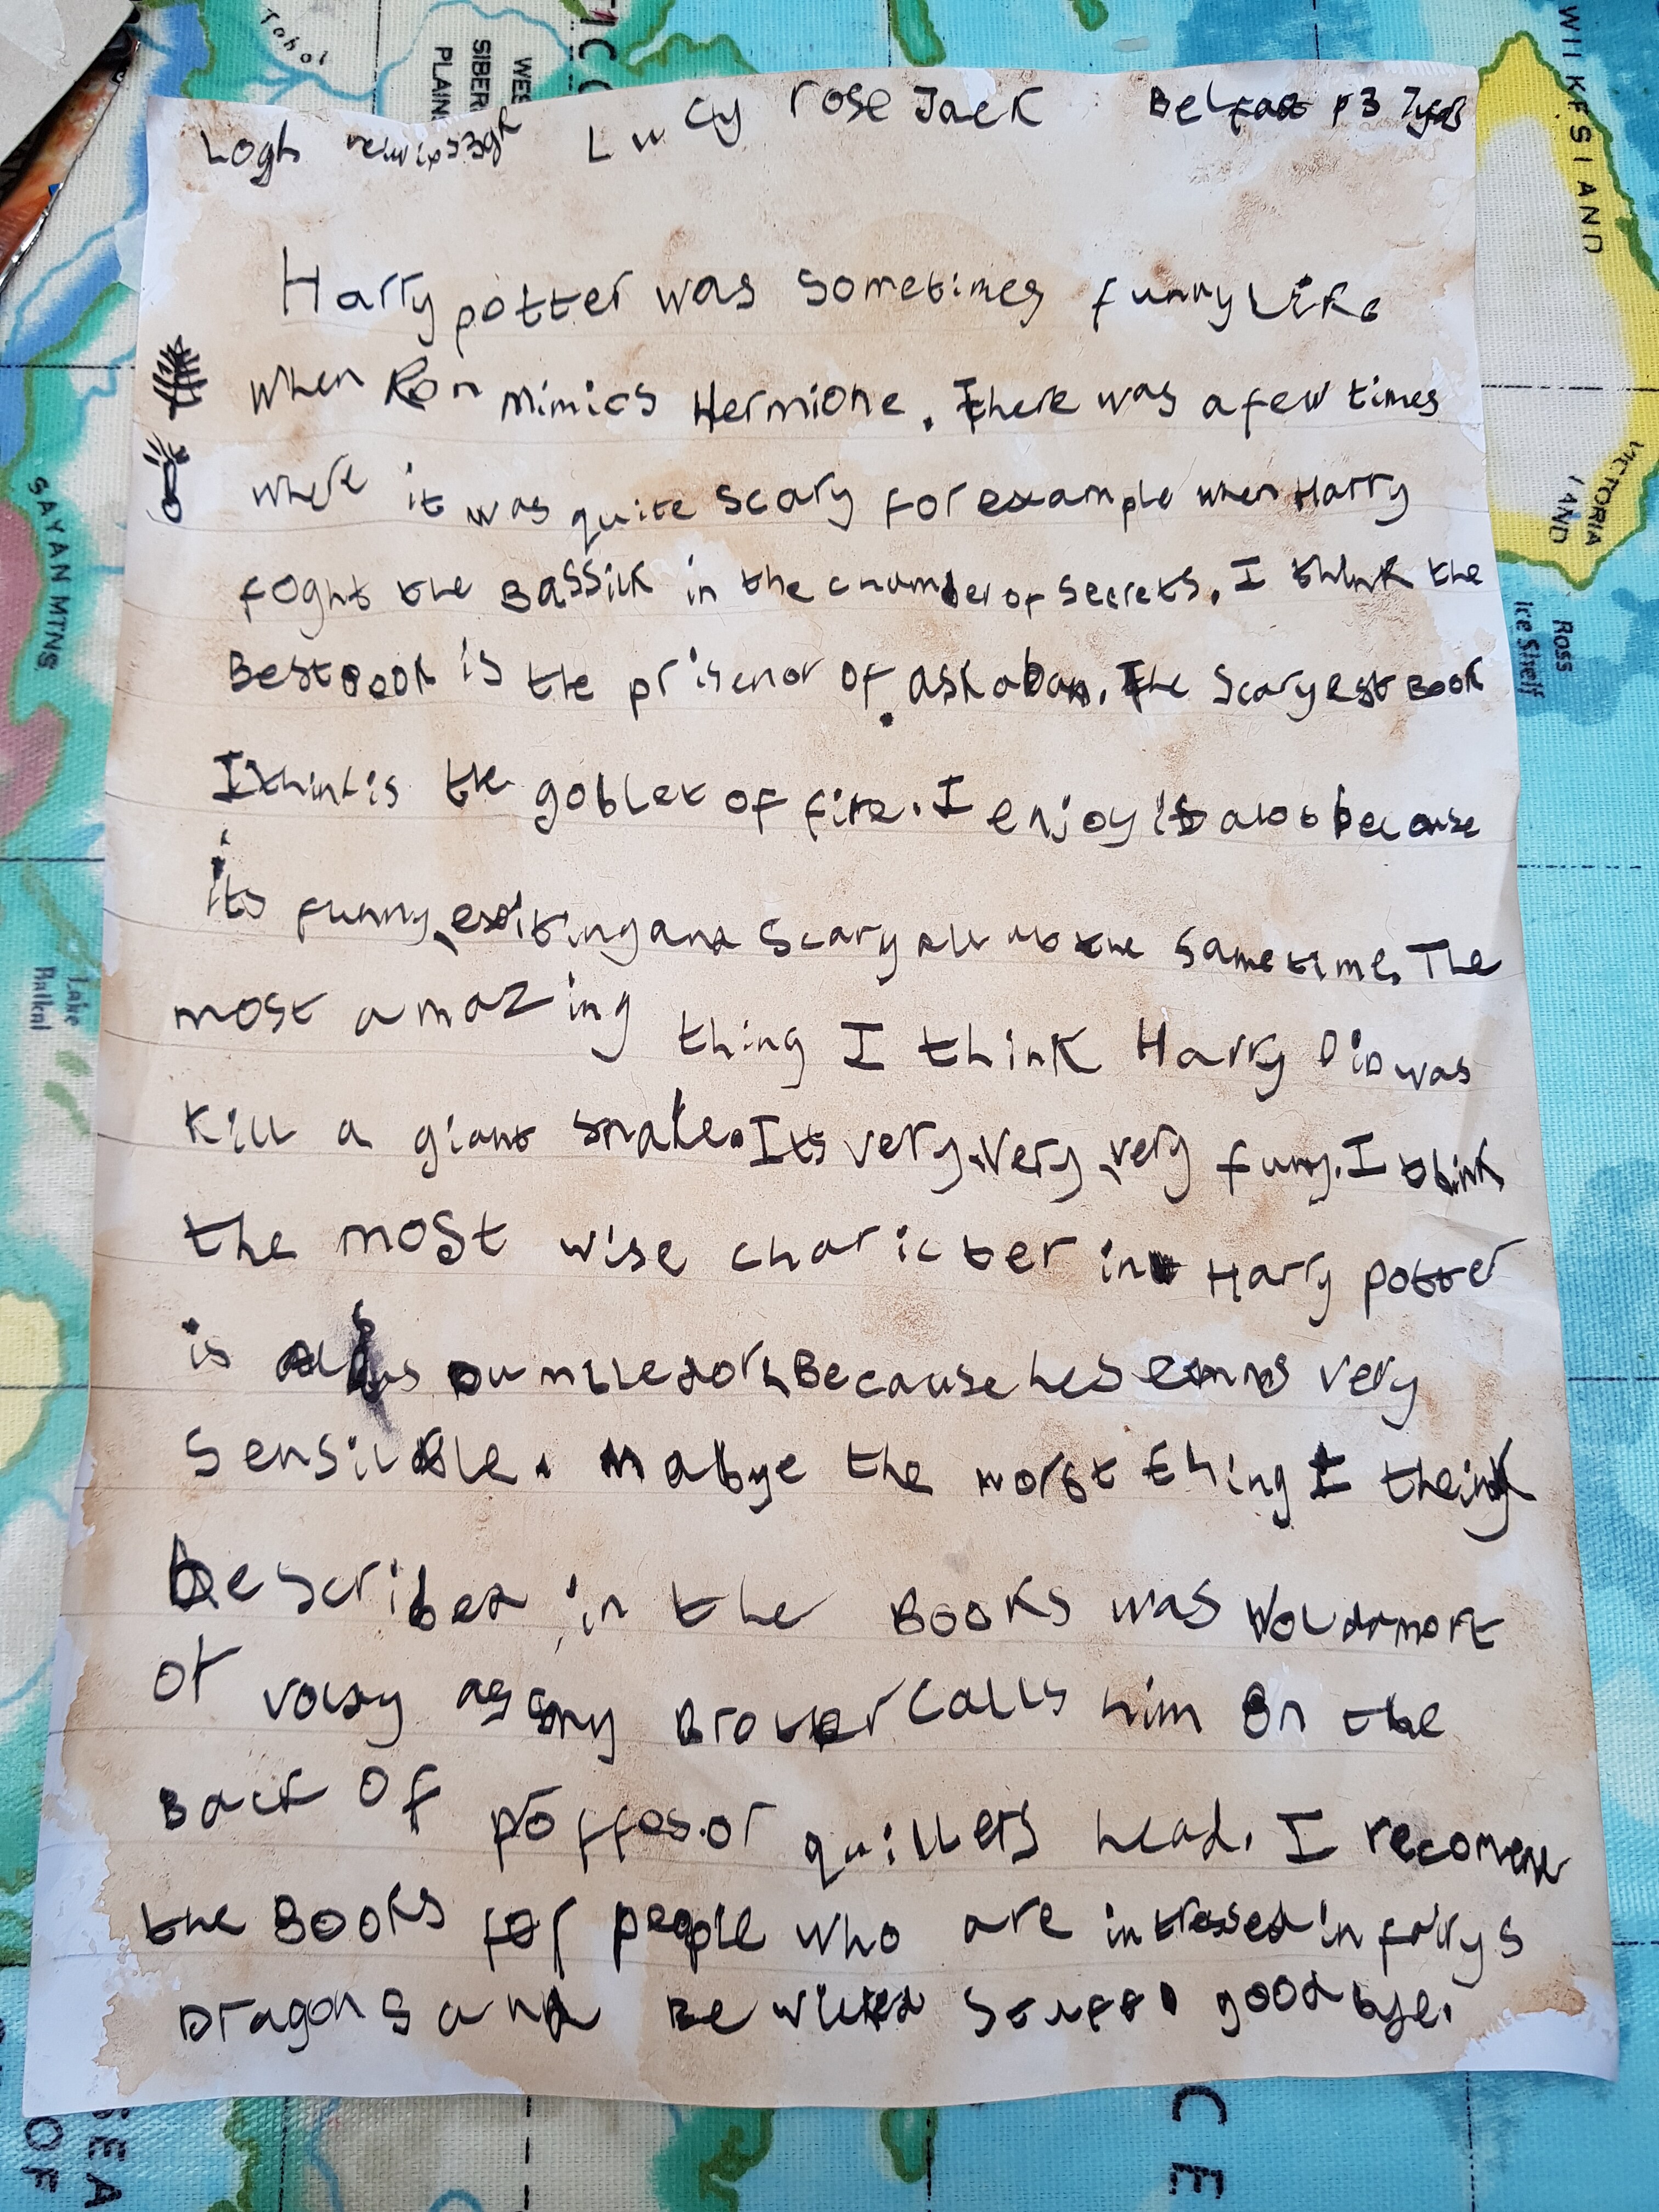 Tobol
WES
SIBER
PLAIN
WILKES LAND
VICTORIA
LAND
Ross
Ice Shelf
SAYAN MTNS
Lake
Baikal
Lucy rose Jack Belfast p3 7yrs
Harry potter was sometimes funny like
when Ron mimics Hermione. There was a few times
where it was quite scary for example when Harry
foght the Bassilk in the chamber of secrets. I think the
Best Book is the prisenor of askaban. The scaryest Book
I think is the goblet of fire. I enjoy it alot because
its funny, exiting and scary all at the same time. The
most amazing thing I think Harry DiD was
kill a giant snake. Its very, very, very funy. I think
the most wise charicter in Harry potter
is Because he seems very
sensible. Mabye the worst thing I
Described in the Books was Voldamort
or voldy as my Brother calls him on the
Back of proffesor quillers head. I recomend
the Books for people who are intressed in fairys
Dragons and Bewiched stuff goodbye.
SEA
OF
C E